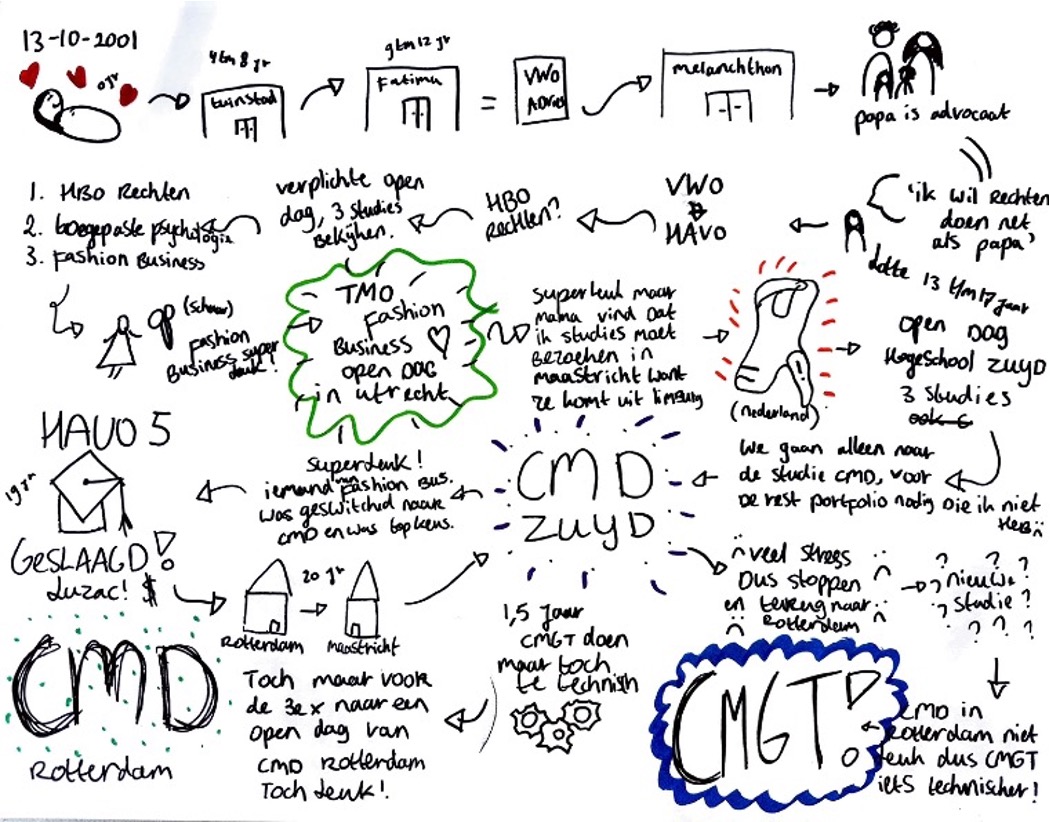 13-10-2001
0 jr
4 tm 8 jr
tuinstad
9 tm 12 jr
Fatima
=
VWO
ADVies
melanchthon
papa is advocaat
'ik wil Rechten
doen net
als papa'
Lotte 13 t/m 17 jaar
VWO
HAVO
HBO
Rechten?
verplichte open
dag, 3 studies
Bekijken.
1. HBO Rechten
2. toegepaste psychologie
3. Fashion Business
(schaar)
Fashion
Business super
leuk!
TMO
Fashion
Business
open DAG
in utrecht
superleuk maar
mama vind dat
ik studies moet
Bezoeken in
maastricht want
ze komt uit limburg
(nederland)
open DAG
Hogeschool ZUYD
3 studies
We gaan alleen naar
de studie CMD, voor
De rest portfolio nodig die ik niet
Heb
CMD
ZUYD
superleuk!
iemand van Fashion Bus.
was geswitchd naar
CMD en was topkeus.
HAVO 5
19 jr
GESLAAGD!
Luzac! $
20 jr
Rotterdam
maastricht
veel stress
Dus stoppen
en terug naar
Rotterdam
? ? ?
? nieuwe ?
? studie ?
? ? ?
CMD in
Rotterdam niet
leuk dus CMGT
iets technischer!
CMGT!
1,5 jaar
CMGT doen
maar toch
te technisch
Toch maar voor
de 3e x naar een
open dag van
CMD Rotterdam
Toch leuk!
CMD
Rotterdam